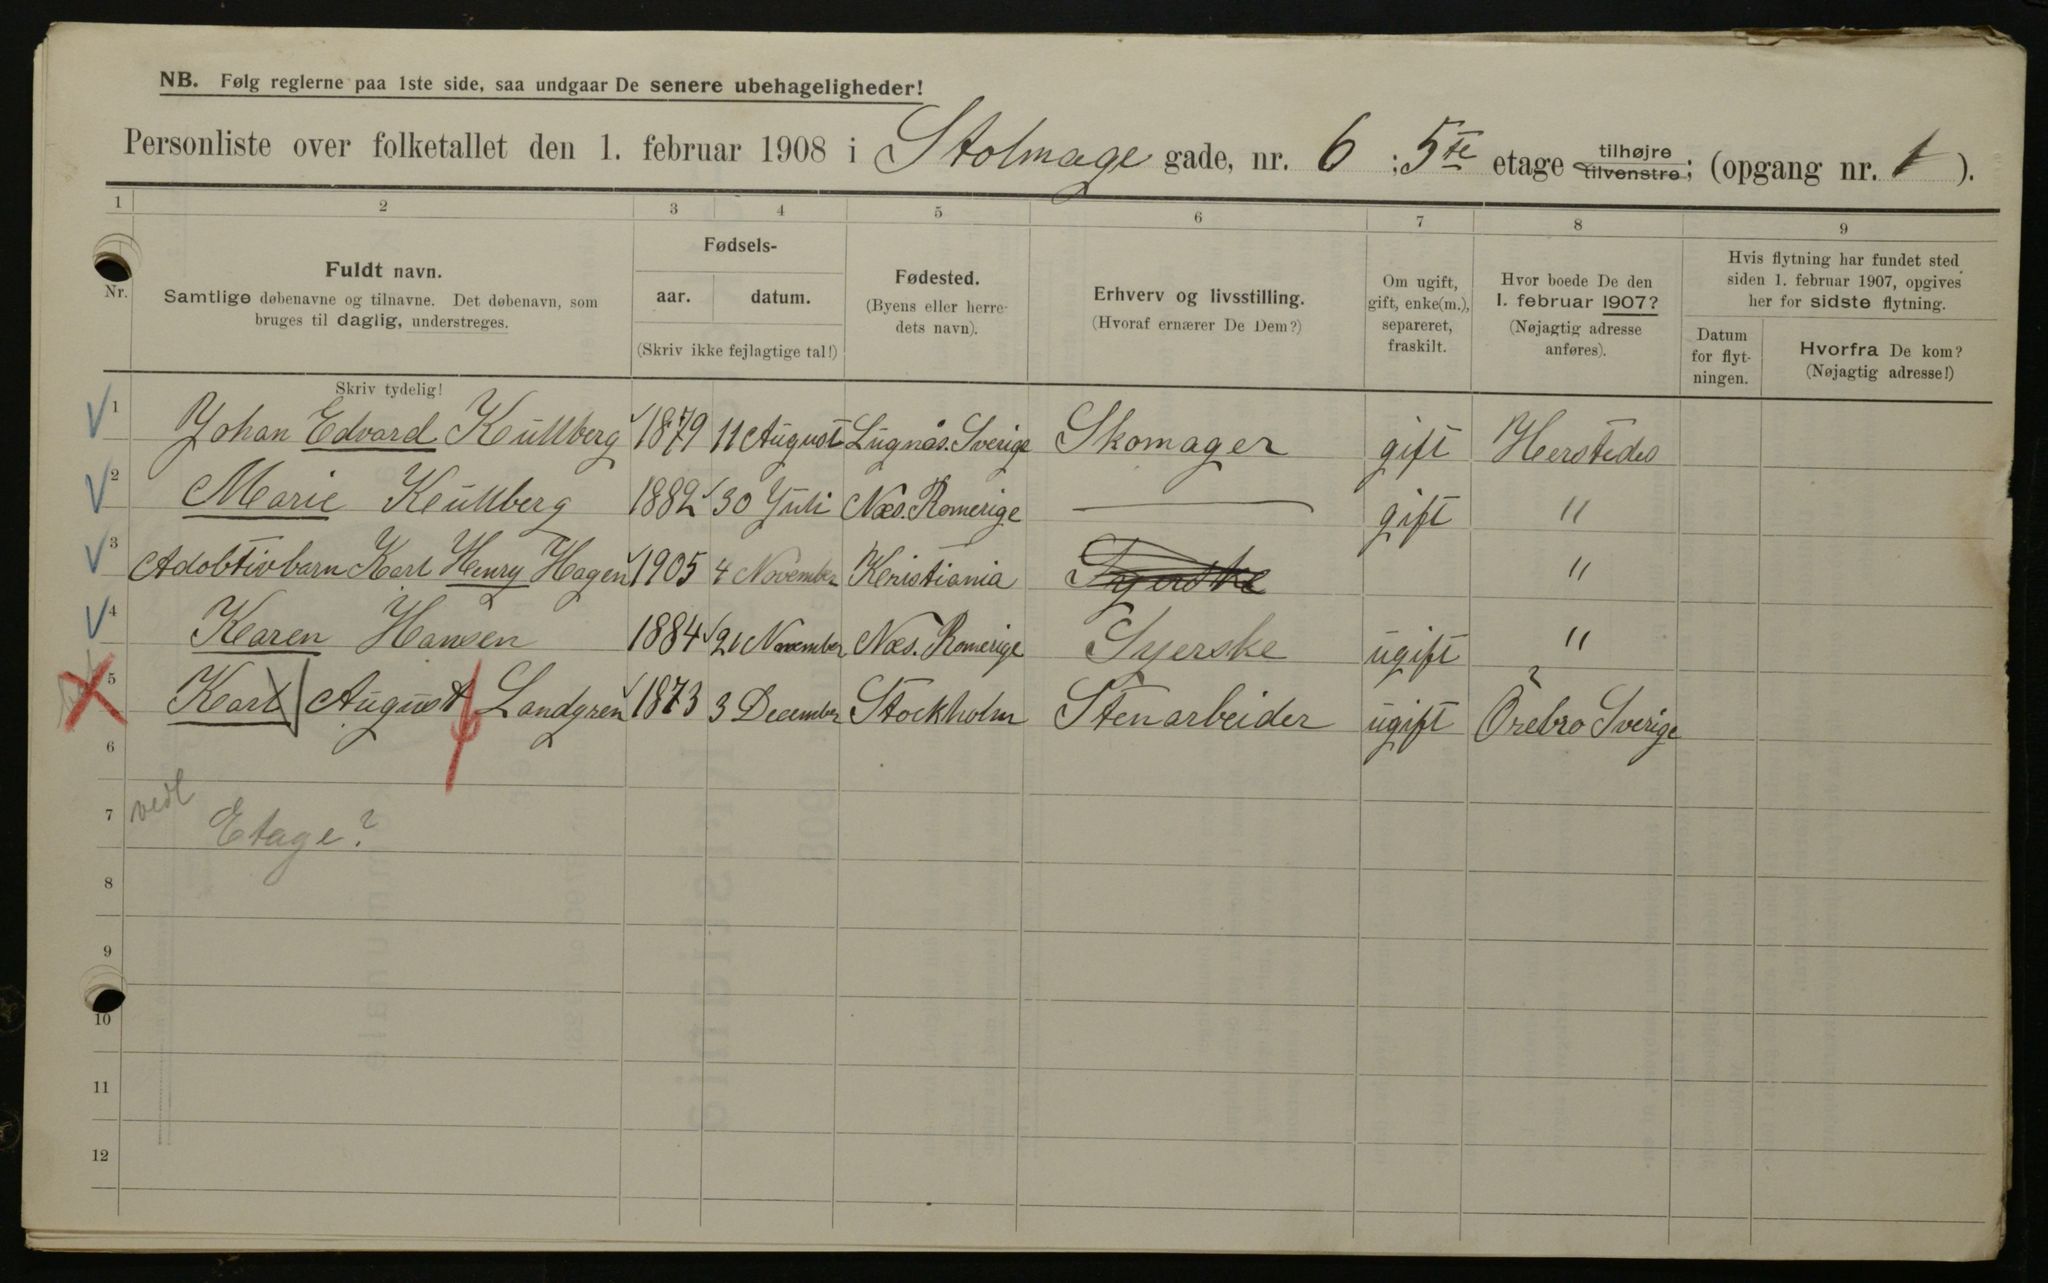 NB. Følg reglerne paa 1ste side, saa undgaar De senere ubehageligheder!
Personliste over folketallet den 1. februar 1908 i Stolmage gade, nr. 6 ; 5te etage tilhøjre tilvenstre; (opgang nr. 1 ).
1 2 3 4 5 6 7 8 9
Nr.
Fuldt navn.
Samtlige døbenavne og tilnavne. Det døbenavn, som
bruges til daglig, understreges.
Skriv tydelig!
Fødsels-
aar. datum.
(Skriv ikke fejlagtige tal!)
Fødested.
(Byens eller herre-
dets navn).
Erhverv og livsstilling.
(Hvoraf ernærer De Dem?)
Om ugift,
gift, enke(m.),
separeret,
fraskilt.
Hvor boede De den
1. februar 1907?
(Nøjagtig adresse
anføres).
Hvis flytning har fundet sted
siden 1. februar 1907, opgives
her for sidste flytning.
Datum
for flyt-
ningen.
Hvorfra De kom?
(Nøjagtig adresse!)
1 Johan Edvard Kullberg 1879 11 August Lugnås. Sverige Skomager gift Herstedes
2 Marie Kullberg 1882 30 Juli Næs. Romerige — gift "
3 Adobtivbarn Karl Henry Hagen 1905 4 November Kristiania Syerske "
4 Karen Hansen 1884 21 November Næs. Romerige Syerske ugift "
5 Karl August Landgren 1873 3 December Stockholm Stenarbeider ugift Örebro Sverige
6
7 vedl Etage?
8
9
10
11
12